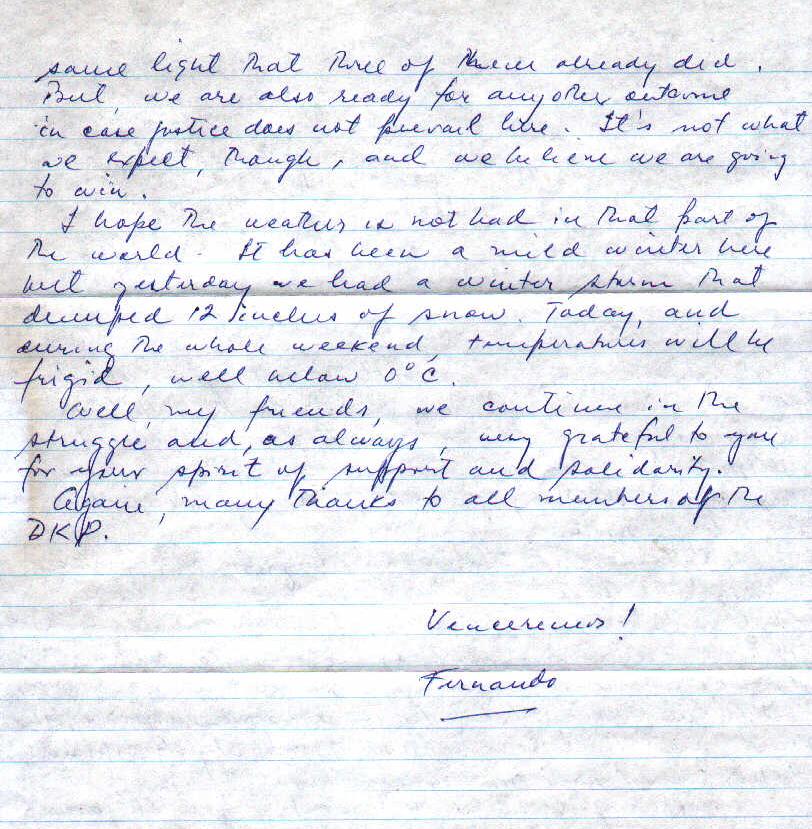 same light that three of them already did.
But, we are also ready for any other outcome
in case justice does not prevail here. It's not what
we expect, though, and we believe we are going
to win.
I hope the weather is not bad in that part of
the world. It has been a mild winter here
but yesterday we had a winter storm that
dumped 12 inches of snow. Today, and
during the whole weekend, temperatures will be
frigid, well below 0°C.
Well, my friends, we continue in the
struggle and, as always, very grateful to you
for your spirit of support and solidarity.
Again, many thanks to all members of the
DKP.
Venceremos!
Fernando